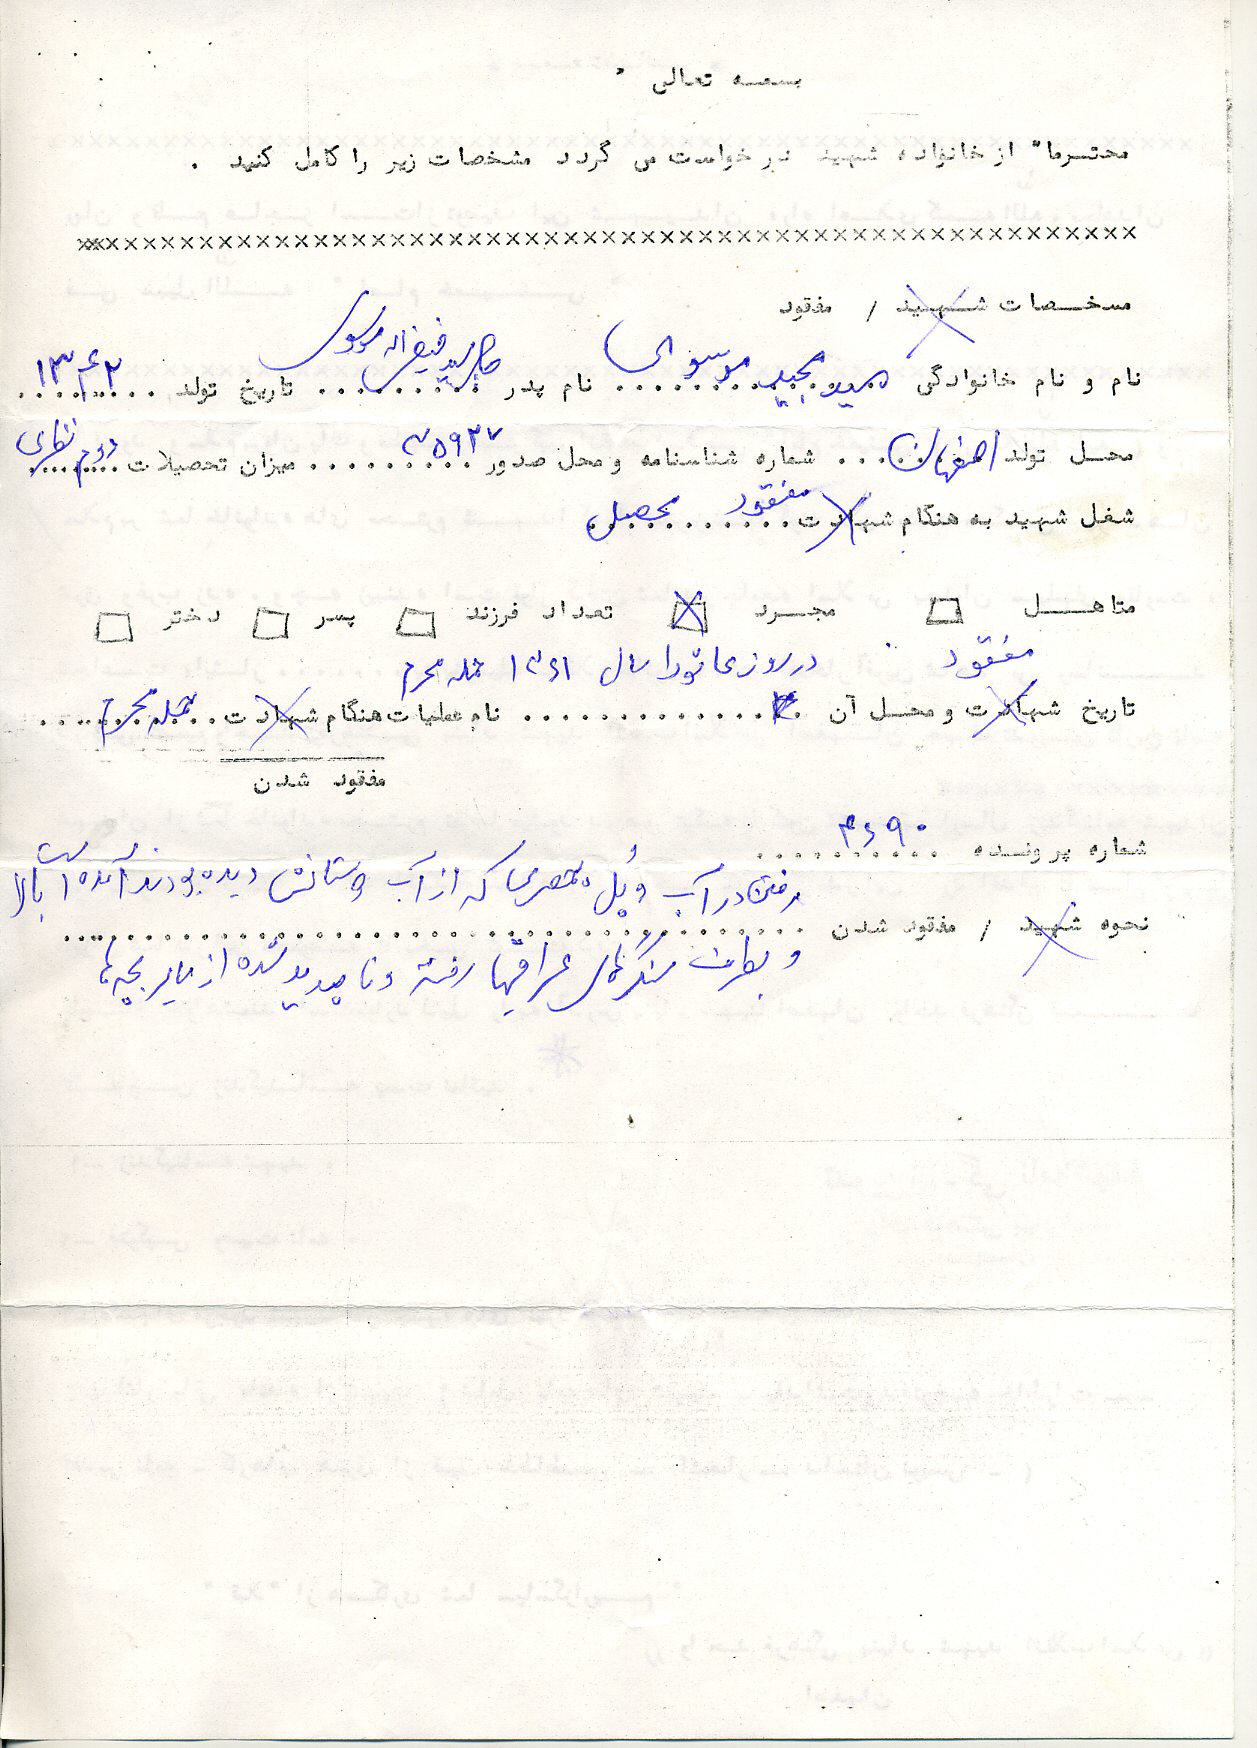 بسمه تعالی "
محترما" از خانواده شهید درخواست می گردد مشخصات زیر را کامل کنید .
××××××××××××××××××××××××××××××××××××××××××××××××××××××××××××
مشخصات شهید / مفقود
نام و نام خانوادگی سید مجید موسوی نام پدر سید فیض اله موسوی تاریخ تولد
محل تولد اصفهان شماره شناسنامه و محل صدور ۳۵۹۲۷ میزان تحصیلات دوم نظری
مفقود
شغل شهید به هنگام شهادت محصل
متاهل مجرد تعداد فرزند پسر دختر
مفقود در روز عاشورا سال ۱۳۶۱ حمله محرم
تاریخ شهادت و محل آن نام عملیات هنگام شهادت حمله محرم
مفقود شدن
شماره پرونده ۴۶۹۰
رفتن در آب و پل که از آب دوستانش دیده بودند آمده است بالا
نحوه شهید / مفقود شدن
و بطرف سنگرهای عراقیها رفته و ناپدید شده از سایر بچه ها